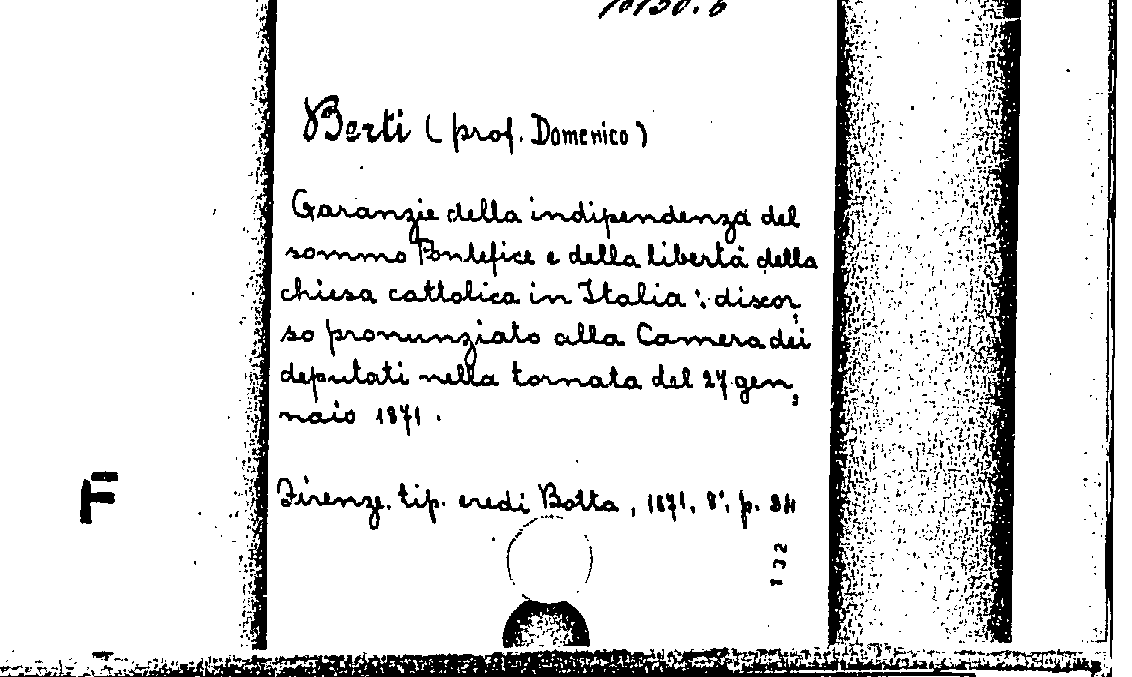 Berti (prof. Domenico)
Garanzie della indipendenza del
sommo Pontefice e della libertà della
chiesa cattolica in Italia : discor,
so pronunziato alla Camera dei
deputati nella tornata del 27 gen,
naio 1871.
Firenze. tip. eredi Botta, 1871. 8°. p. 34
F
132